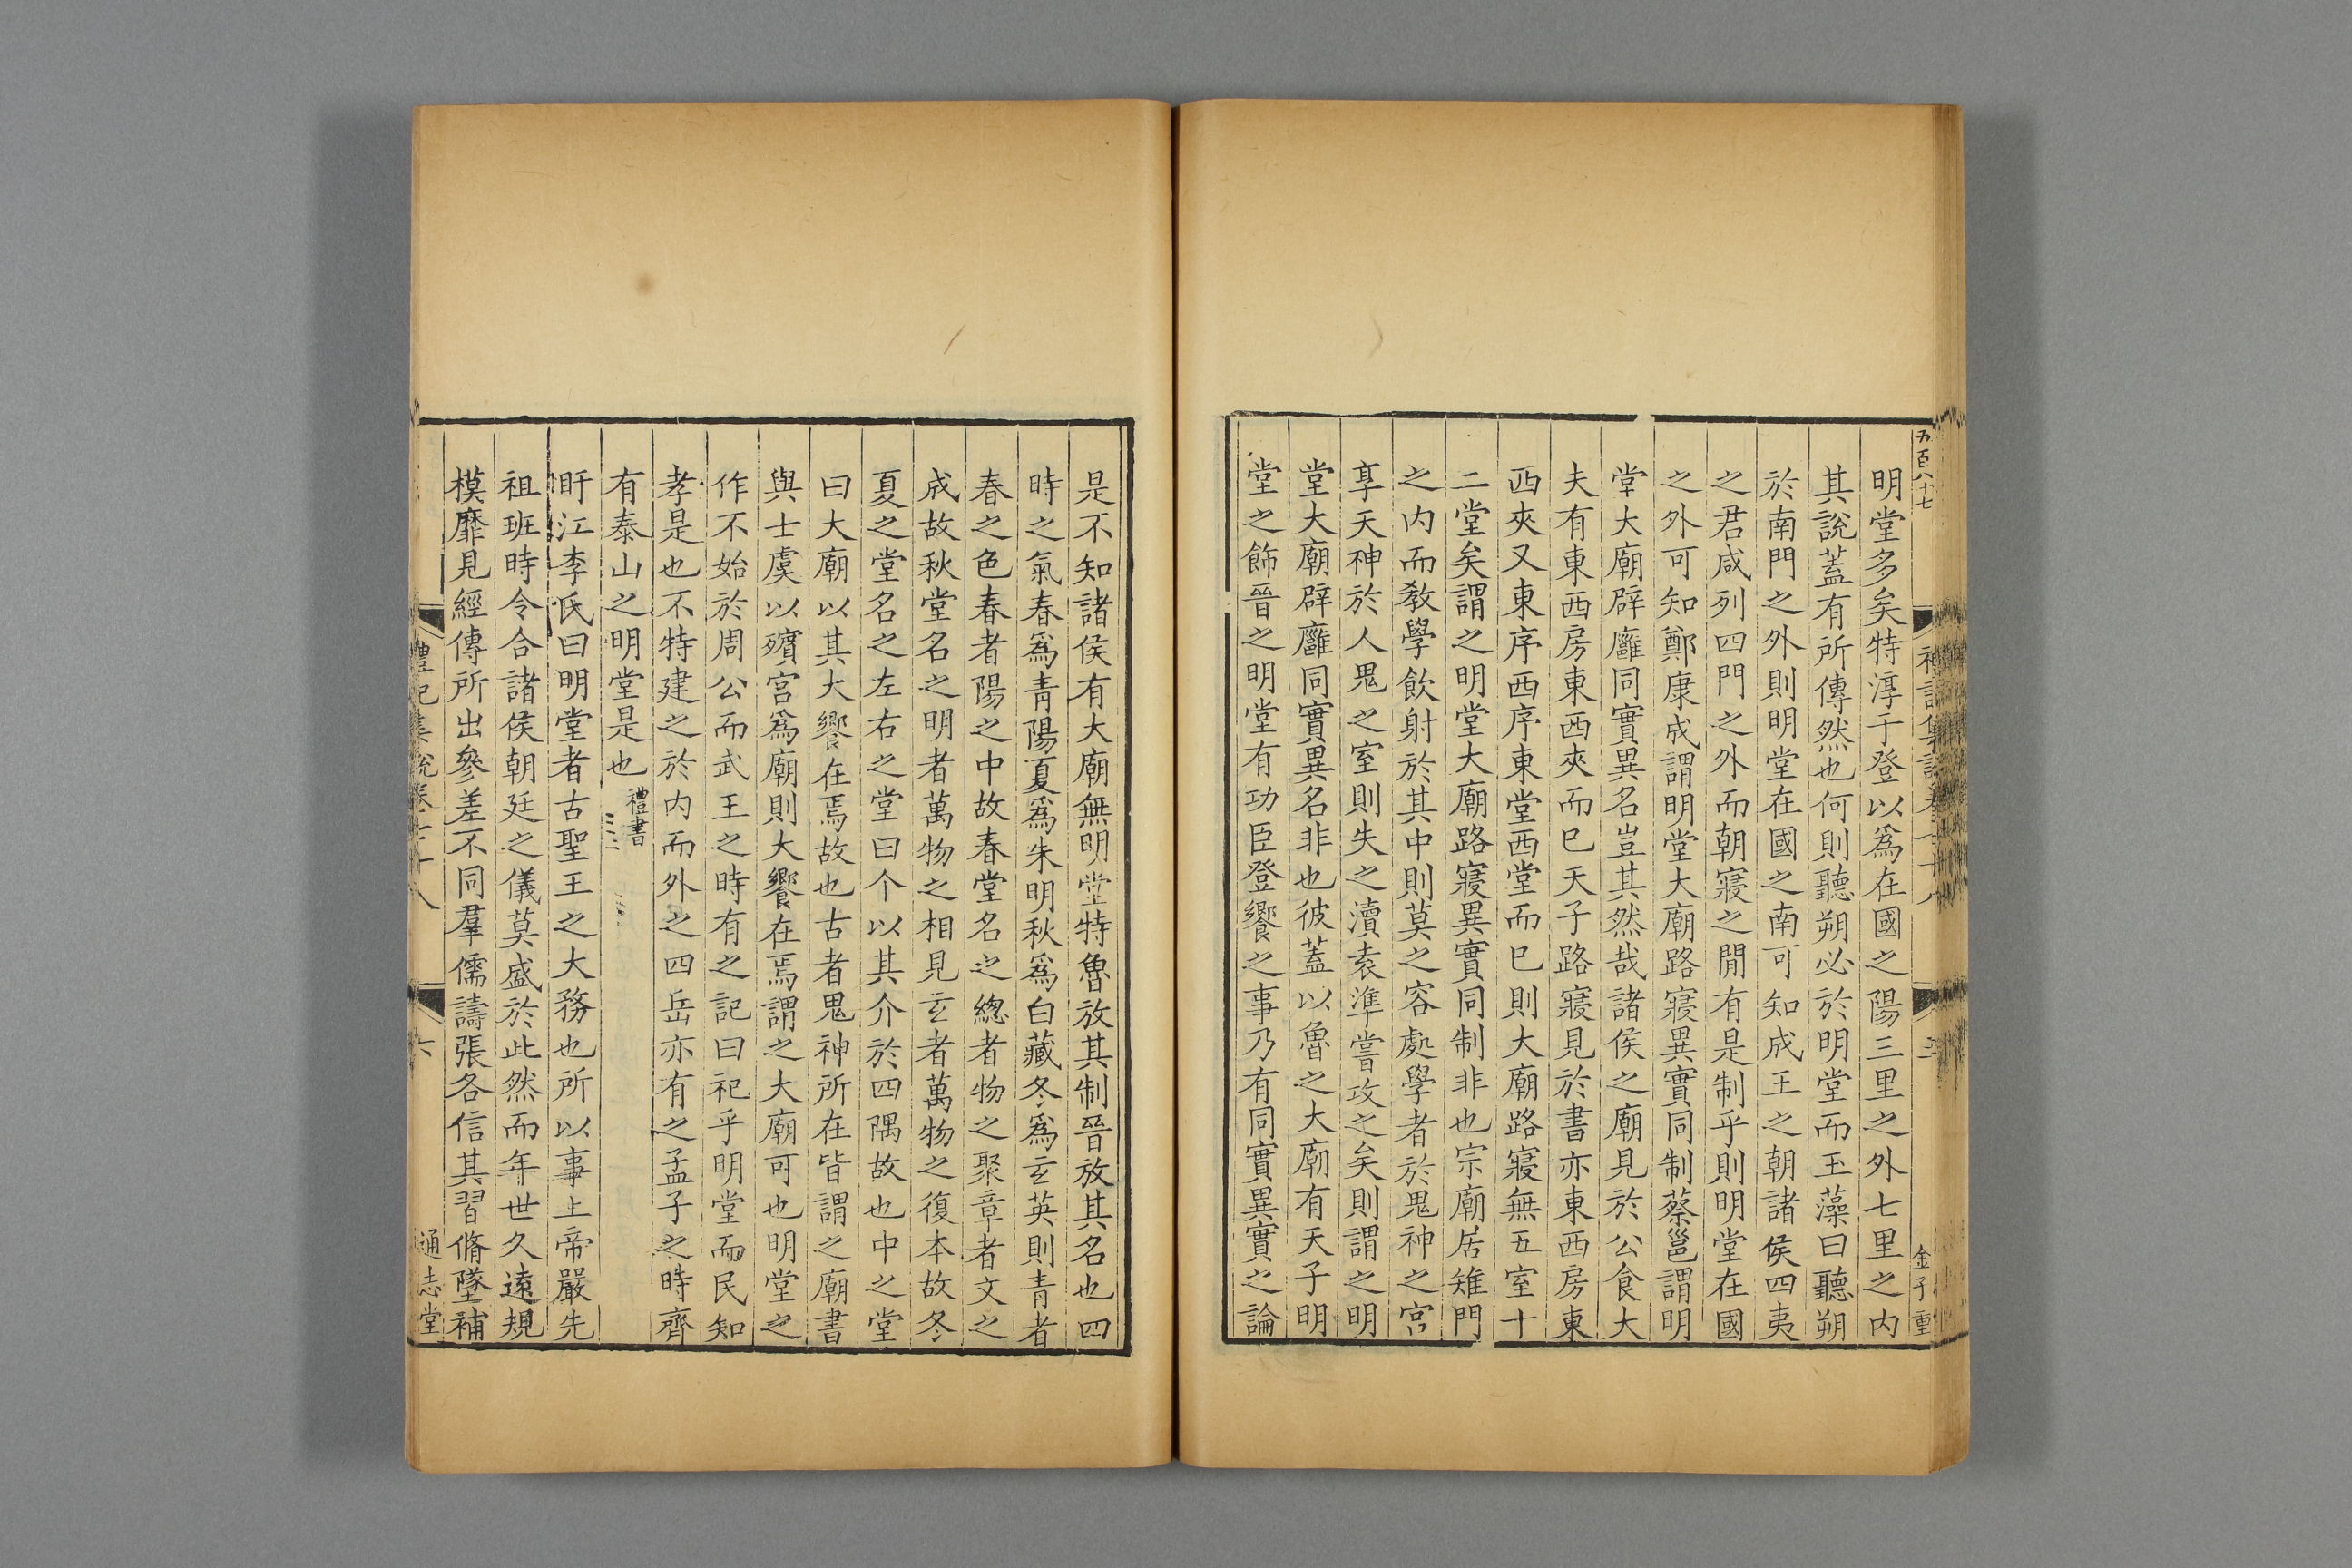 五百八十七
金子重
明堂多矣特淳于登以爲在國之陽三里之外七里之内
其說蓋有所傳然也何則聽朔必於明堂而玉藻曰聽朔
於南門之外則明堂在國之南可知成王之朝諸侯四夷
之君咸列四門之外而朝寢之閒有是制乎則明堂在國
之外可知鄭康成謂明堂大廟路寢異實同制蔡邕謂明
堂大廟辟廱同實異名豈其然哉諸侯之廟見於公食大
夫有東西房東西夾而巳天子路寢見於書亦東西房東
西夾又東序西序東堂西堂而巳則大廟路寢無五室十
二堂矣謂之明堂大廟路寢異實同制非也宗廟居雉門
之内而教學飲射於其中則莫之容處學者於鬼神之宮
享天神於人鬼之室則失之瀆袁準嘗攻之矣則謂之明
堂大廟辟廱同實異名非也彼蓋以魯之大廟有天子明
堂之飾晉之明堂有功臣登饗之事乃有同實異實之論
是不知諸侯有大廟無明堂特魯放其制晉放其名也四
時之氣春爲青陽夏爲朱明秋爲白藏冬爲玄英則青者
春之色春者陽之中故春堂名之總者物之聚章者文之
成故秋堂名之明者萬物之相見玄者萬物之復本故冬
夏之堂名之左右之堂曰个以其介於四隅故也中之堂
曰大廟以其大饗在焉故也古者鬼神所在皆謂之廟書
與士虞以殯宮爲廟則大饗在焉謂之大廟可也明堂之
作不始於周公而武王之時有之記曰祀乎明堂而民知
孝是也不特建之於内而外之四岳亦有之孟子之時齊
有泰山之明堂是也禮書
盱江李氏曰明堂者古聖王之大務也所以事上帝嚴先
祖班時令合諸侯朝廷之儀莫盛於此然而年世久遠規
模靡見經傳所出參差不同羣儒譸張各信其習脩墜補
禮記集說卷七十八
六
通志堂